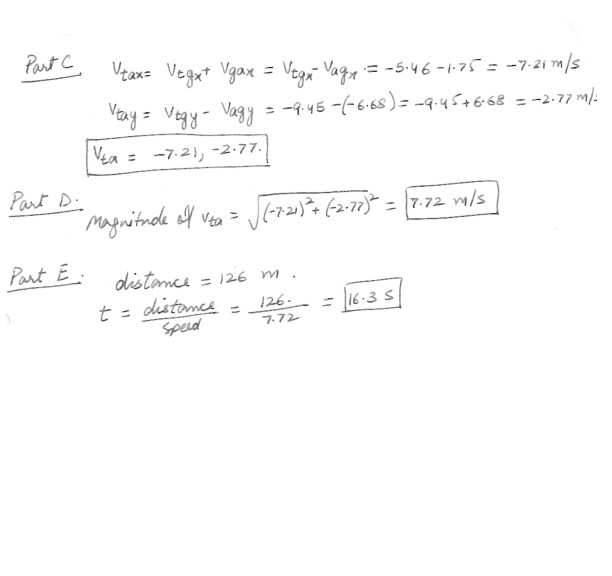 Part C. Vtax = Vtgx + Vgax = Vtgx - Vagx = -5.46 - 1.75 = -7.21 m/s
Vtay = Vtgy - Vagy = -9.45 - (-6.68) = -9.45 + 6.68 = -2.77 m/s
Vta = -7.21, -2.77.
Part D. Magnitude of Vta = √(-7.21)² + (-2.77)² = 7.72 m/s
Part E. distance = 126 m.
t = distance/speed = 126./7.72 = 16.3 s